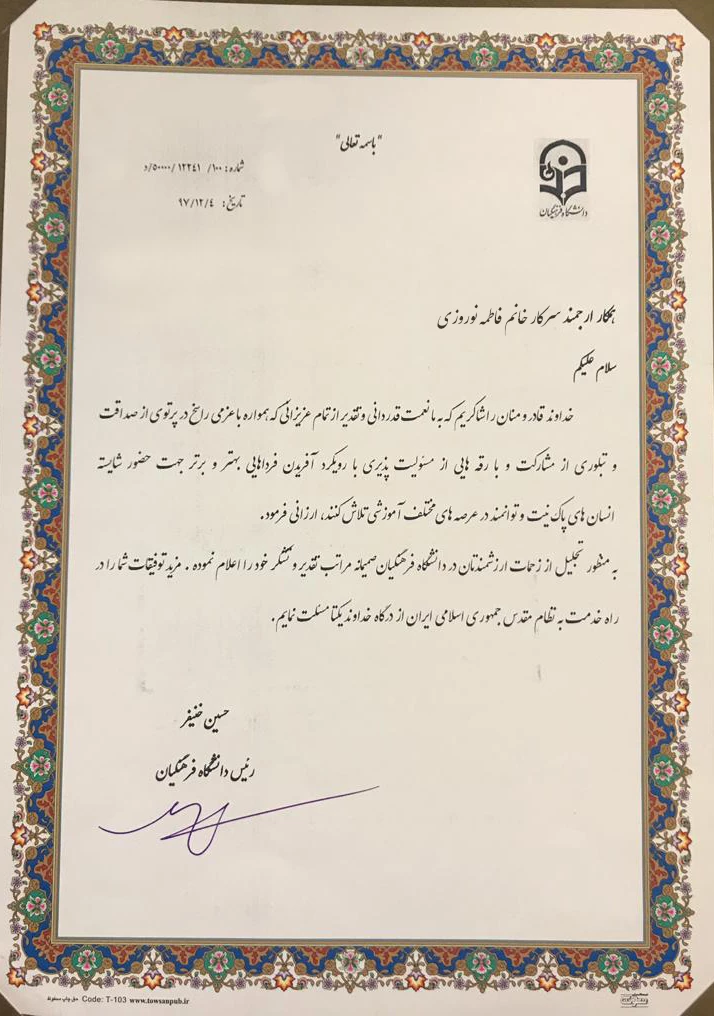 "باسمه تعالی"
شماره: ۱۰۰/ ۱۲۲۴۱ /۵۰۰۰۰/د
تاریخ: ۹۷/۱۲/۴
دانشگاه فرهنگیان
همکار ارجمند سرکار خانم فاطمه نوروزی
سلام علیکم
خداوند قادر و منان را شاکریم که به ما نعمت قدردانی و تقدیر از تمام عزیزانی که همواره با عزمی راسخ در پرتوی از صداقت
و تبلوری از مشارکت و با رقه هایی از مسئولیت پذیری با رویکرد آفریدن فرداهایی بهتر و برتر جهت حضور شایسته
انسان های پاک نیت و توانمند در عرصه های مختلف آموزشی تلاش کنند، ارزانی فرمود.
به منظور تجلیل از زحمات ارزشمندتان در دانشگاه فرهنگیان صمیمانه مراتب تقدیر و تشکر خود را اعلام نموده . مزید توفیقات شما را در
راه خدمت به نظام مقدس جمهوری اسلامی ایران از درگاه خداوند یکتا مسئلت نمایم.
حسین خنیفر
رئیس دانشگاه فرهنگیان
حق چاپ محفوظ Code: T-103 www.towsanpub.ir